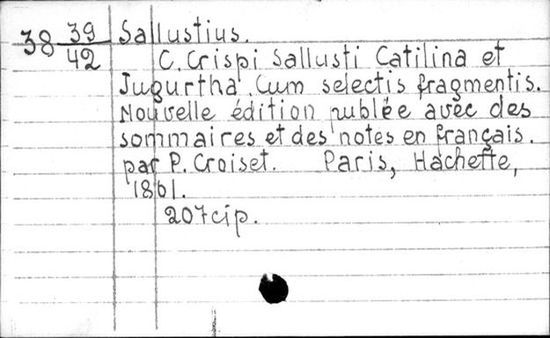 38 39/42 Sallustius.
C. Crispi Sallusti Catilina et
Jugurtha. Cum selectis fragmentis.
Nouvelle édition publée avec des
sommaires et des notes en français.
par P. Croiset. Paris, Hachette,
1861.
207 cip.